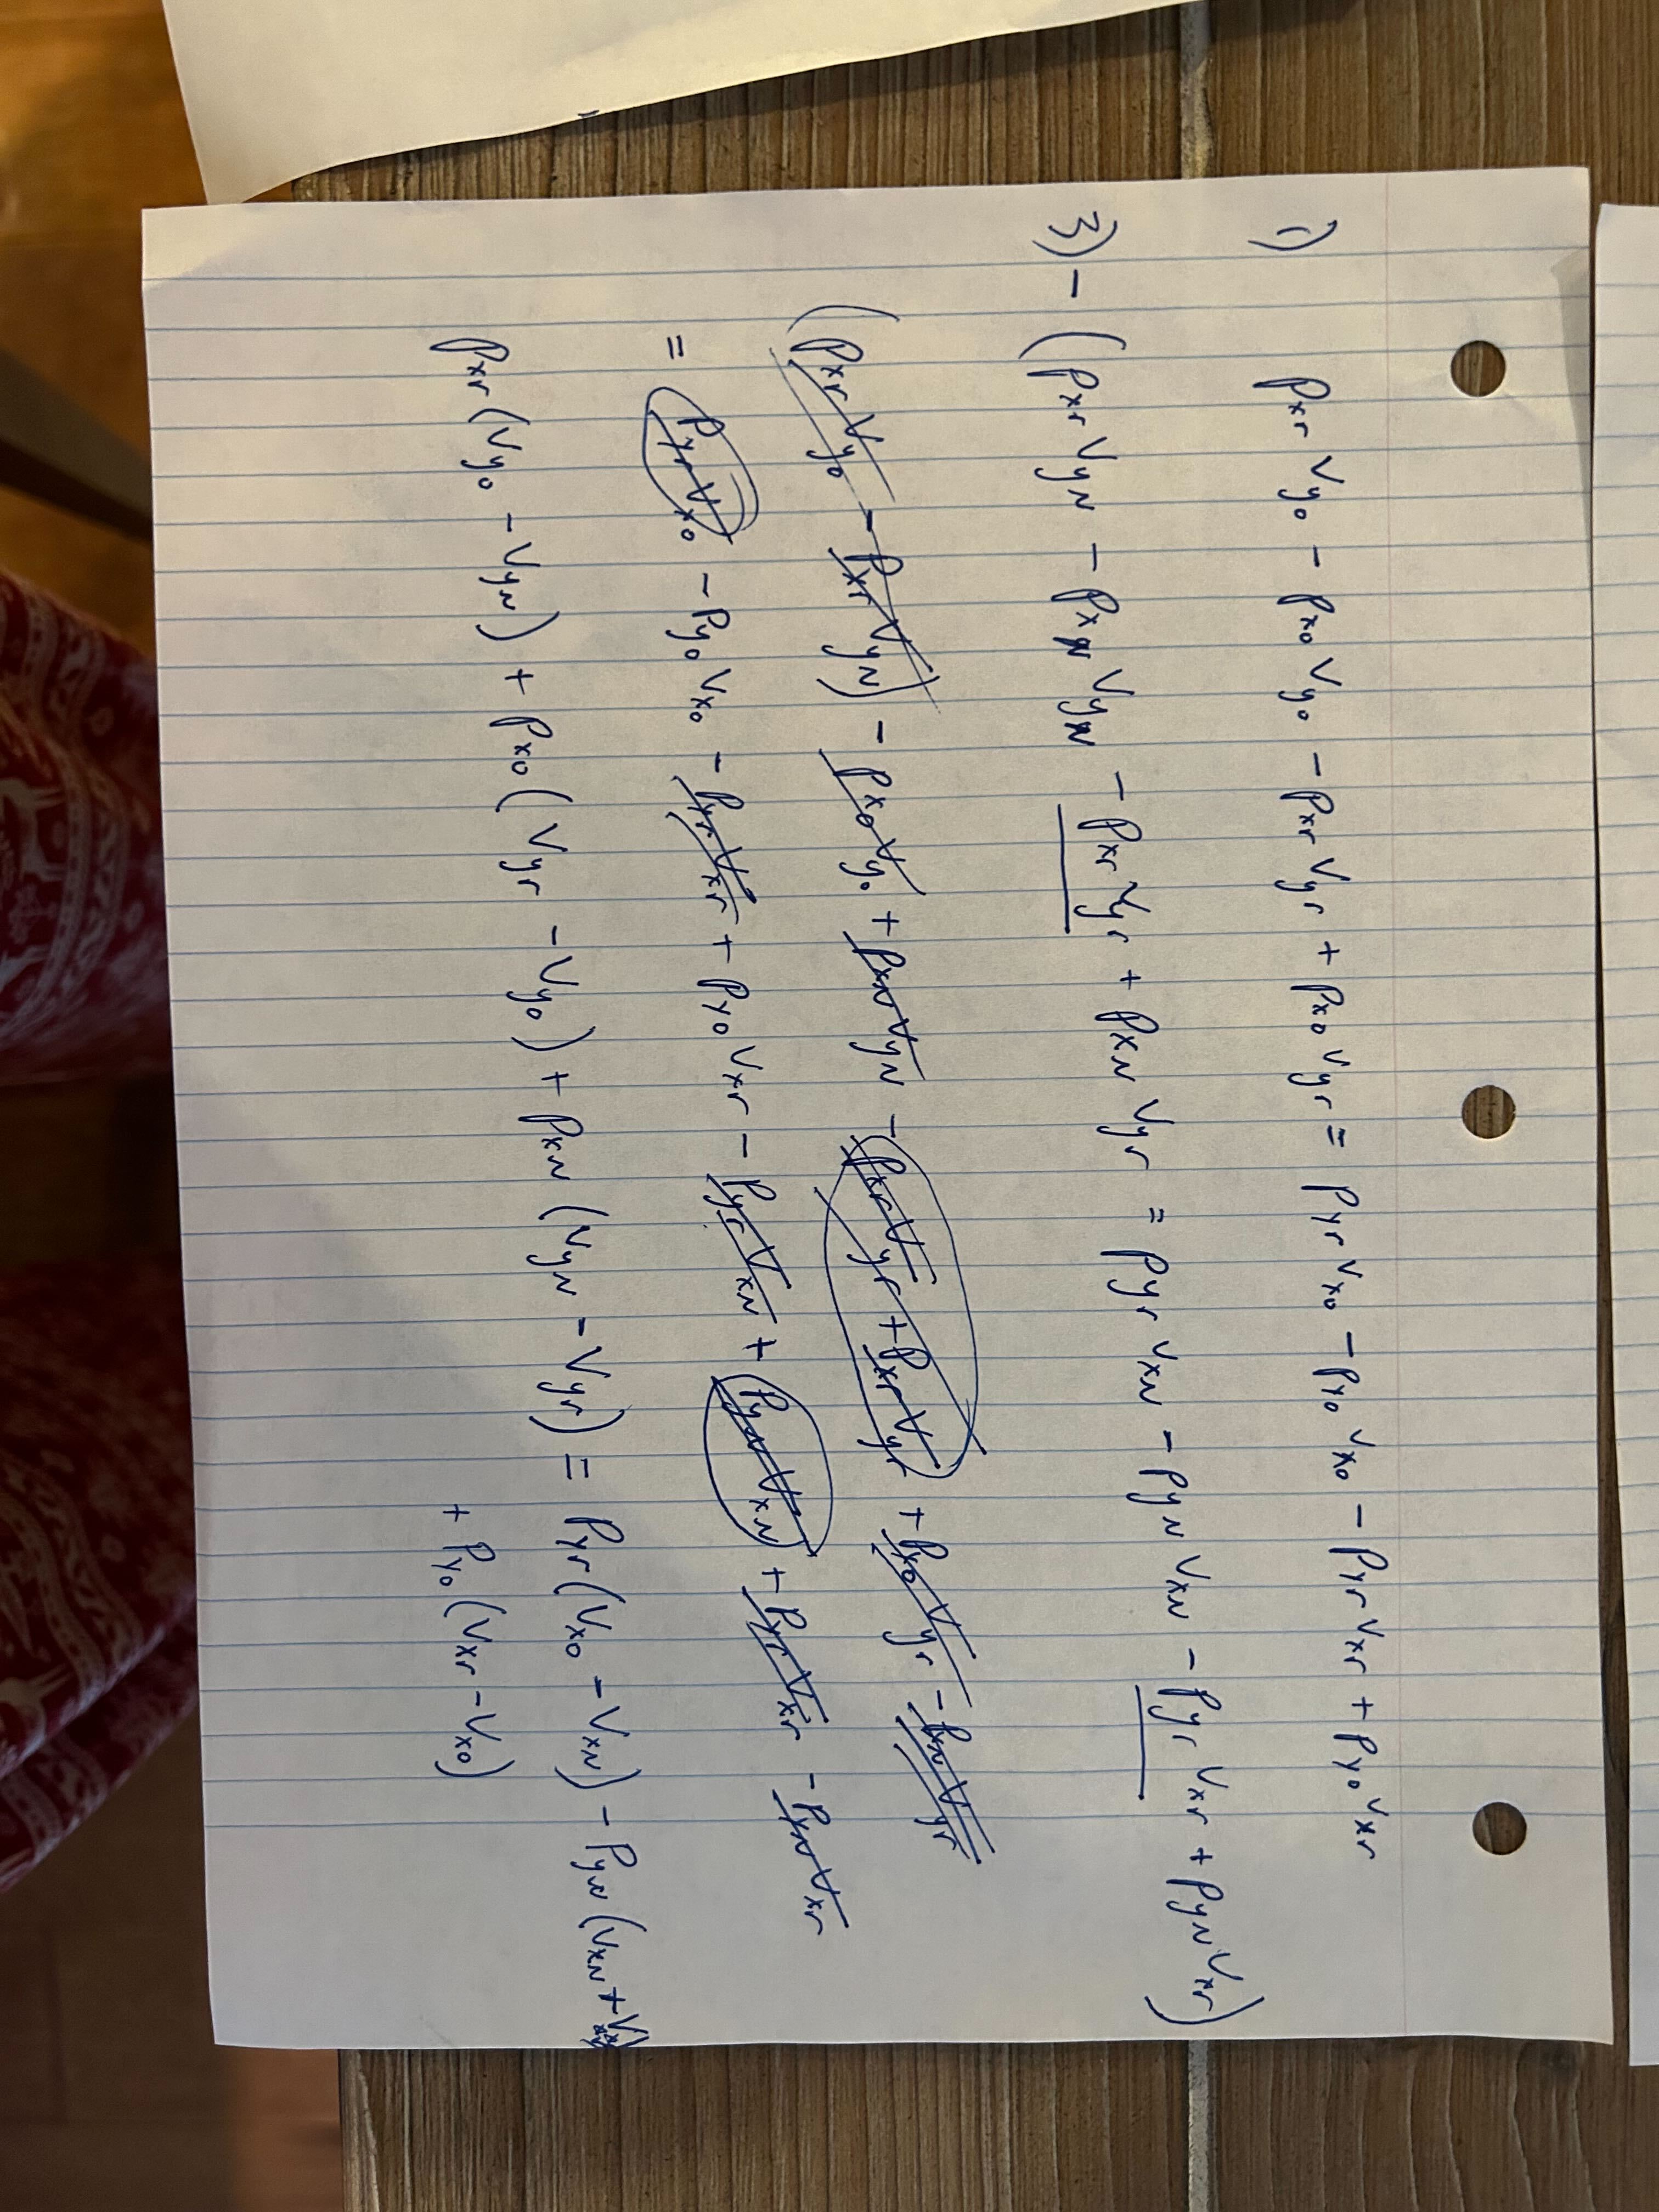 1) Pxr Vyo - Pxo Vyo - Pxr Vyr + Pxo Vyr = Pyr Vxo - Pyo Vxo - Pyr Vxr + Pyo Vxr
3) - (Pxr VyN - PxN VyN - Pxr Vyr + PxN Vyr = Pyr VxN - PyN VxN - Pyr Vxr + PyN Vxr)
(Pxr Vyo - Pxr VyN) - Pxo Vyo + PxN VyN - Pxr Vyr + Pxr Vyr + Pxo Vyr - PxN Vyr
= Pyr Vxo - Pyo Vxo - Pyr Vxr + Pyo Vxr - Pyr VxN + PyN VxN + Pyr Vxr - PyN Vxr
Pxr (Vyo - VyN) + Pxo (Vyr - Vyo) + PxN (VyN - Vyr) = Pyr (Vxo - VxN) - PyN (VxN +
+ Pyo (Vxr - Vxo)